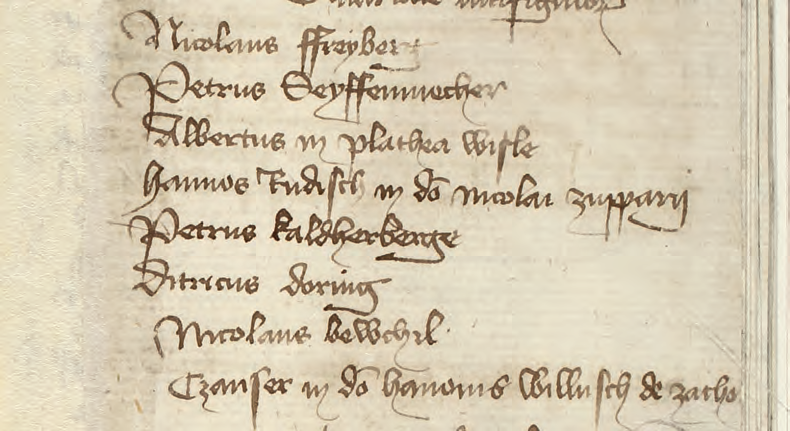 Nicolaus ffreyberg
Petrus Seyffenmecher
Albertus in plathea wisle
hannos Rudisch in dō nicolai zupparij
Petrus kaldherberge
Ditricus doring
Nicolaus bewchil
Czanser in dō hannonis willusch de zatho